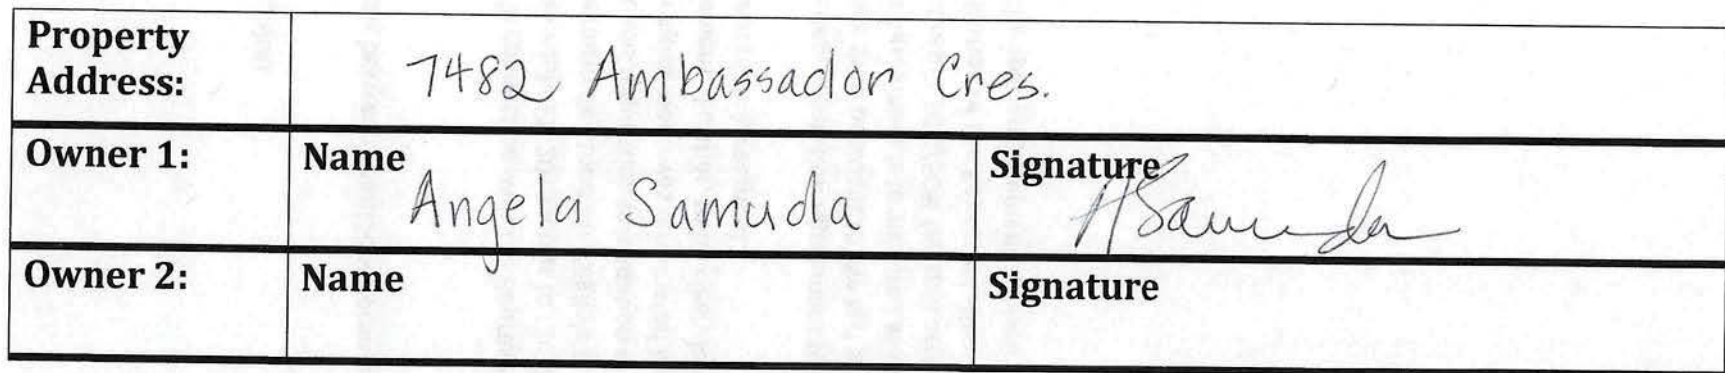 Property Address: 7482 Ambassador Cres.
Owner 1: Name Angela Samuda Signature ASamuda
Owner 2: Name Signature